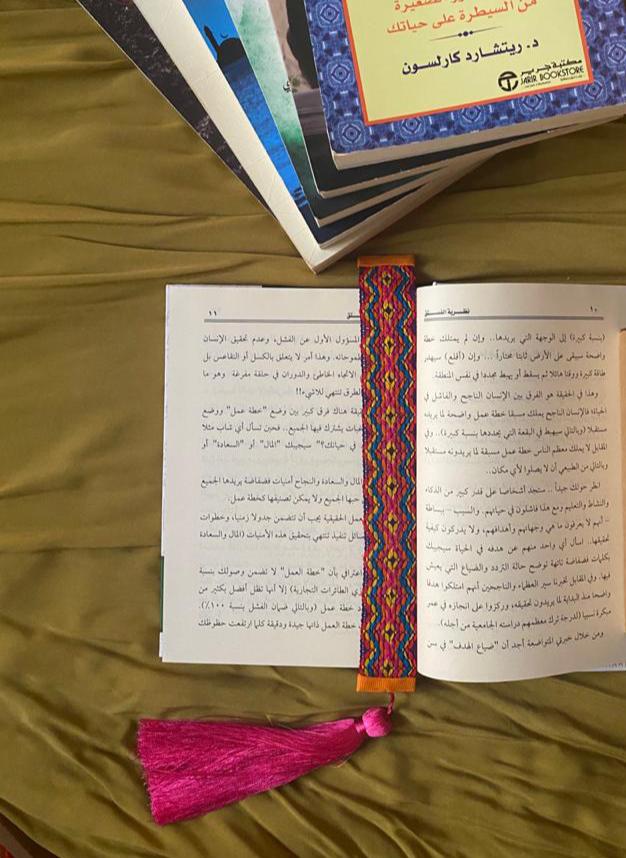 من السيطرة على حياتك
د. ريتشارد كارلسون
مكتبة جرير
JARIR BOOKSTORE
١٠
نظرية الفستق
(بنسبة كبيرة) إلى الوجهة التي يريدها.. وإن لم يمتلك خطة
واضحة سيبقى على الأرض ثابتا محتاراً... وإن (أقلع) سيهدر
طاقة كبيرة ووقتا هائلا ثم يسقط أو يهبط مجددا في نفس المنطقة.
وهذا في الحقيقة هو الفرق بين الإنسان الناجح والفاشل في
الحياة؛ فالإنسان الناجح يملك مسبقا خطة عمل واضحة لما يريده
مستقبلا (وبالتالي سيهبط في البقعة التي يحددها بنسبة كبيرة).. وفي
المقابل لا يملك معظم الناس خطة عمل مسبقة لما يريدونه مستقبلا
وبالتالي من الطبيعي أن لا يصلوا لأي مكان..
انظر حولك جيداً .. ستجد أشخاصا على قدر كبير من الذكاء
والنشاط والتعليم ومع هذا فاشلون في حياتهم. والسبب - ببساطة
- أنهم لا يعرفون ما هي وجهاتهم وأهدافهم، ولا يدركون كيفية
تحقيقها.. اسأل أي واحد منهم عن هدفه في الحياة سيجيبك
بكلمات فضفاضة تائهة توضح حالة التردد والضياع التي يعيش
فيها. وفي المقابل تخبرنا سير العظماء والناجحين أنهم امتلكوا هدفا
واضحا منذ البداية لما يريدون تحقيقه، وركزوا على انجازه في عمر
مبكرة نسبيا (لدرجة ترك معظمهم دراسته الجامعية من أجله).
ومن خلال خبرتي المتواضعة أجد أن "ضياع الهدف" في بس
١١
المسؤول الأول عن الفشل، وعدم تحقيق الإنسان
لطموحاته. وهذا أمر لا يتعلق بالكسل أو التقاعس بل
الاتجاه الخاطئ والدوران في حلقة مفرغة وهو ما
الطرق لتنتهي للاشيء!!
هناك فرق كبير بين وضع "خطة عمل" ووضع
يشترك فيها الجميع.. فحين تسأل أي شاب مثلا
في حياتك؟" سيجيبك "المال" أو "السعادة" أو
المال والسعادة والنجاح أمنيات فضفاضة يريدها الجميع
الجميع ولا يمكن تصنيفها كخطة عمل.
العمل الحقيقية يجب أن تتضمن جدولا زمنيا، وخطوات
تنفيذ تنتهي بتحقيق هذه الأمنيات (المال والسعادة
اعترافي بأن "خطة العمل" لا تضمن وصولك بنسبة
الطائرات التجارية) إلا أنها تظل أفضل بكثير من
خطة عمل (وبالتالي ضمان الفشل بنسبة ١٠٠٪).
خطة العمل ذاتها جيدة ودقيقة كلما ارتفعت حظوظك